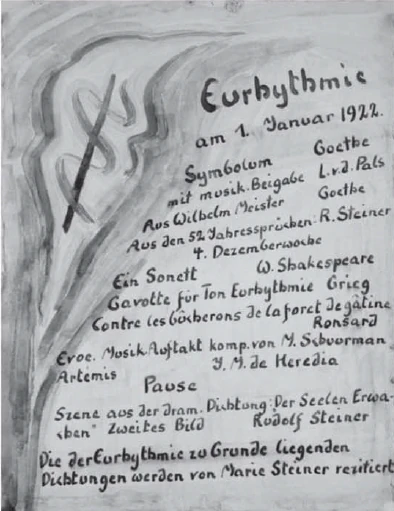 Eurhythmie
am 1. Januar 1922.
Symbolum Goethe
mit musik. Beigabe L.v.d. Pals
Aus Wilhelm Meister Goethe
Aus den 52 Jahressprüchen: R. Steiner
4. Dezemberwoche
Ein Sonett W. Shakespeare
Gavotte für Ton Eurhythmie Grieg
Contre les bûcherons de la foret de gâtine
Ronsard
Evoe. Musik. Auftakt komp. von M. Schuurman
Artemis J. M. de Heredia
Pause
Szene aus der dram. Dichtung: Der Seelen Erwa-
chen" Zweites Bild Rudolf Steiner
Die der Eurhythmie zu Grunde liegenden
Dichtungen werden von Marie Steiner rezitiert